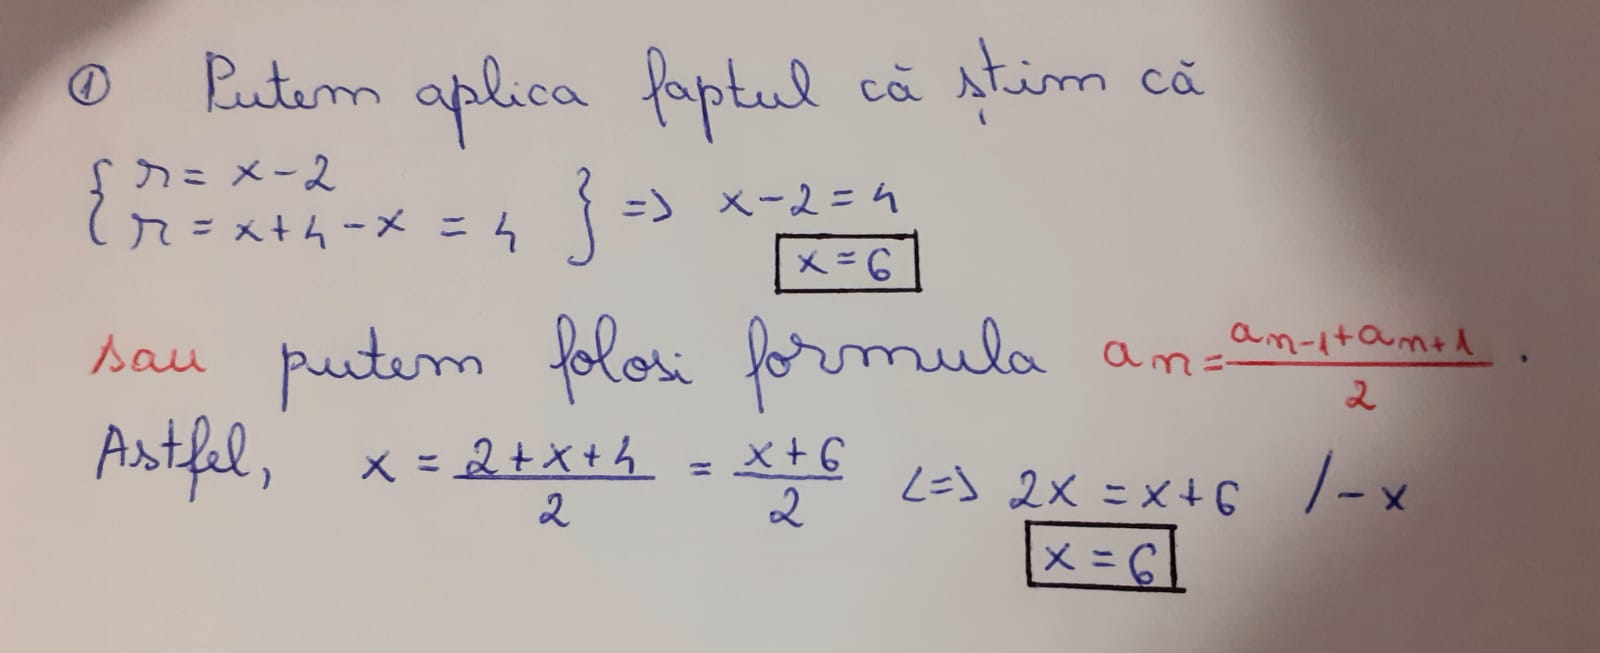 ① Putem aplica faptul că știm că
{ r = x - 2
r = x + 4 - x = 4 } => x - 2 = 4
x = 6
sau putem folosi formula an = (an-1 + an+1)/2 .
Astfel, x = (2 + x + 4)/2 = (x + 6)/2 <=> 2x = x + 6 / - x
x = 6